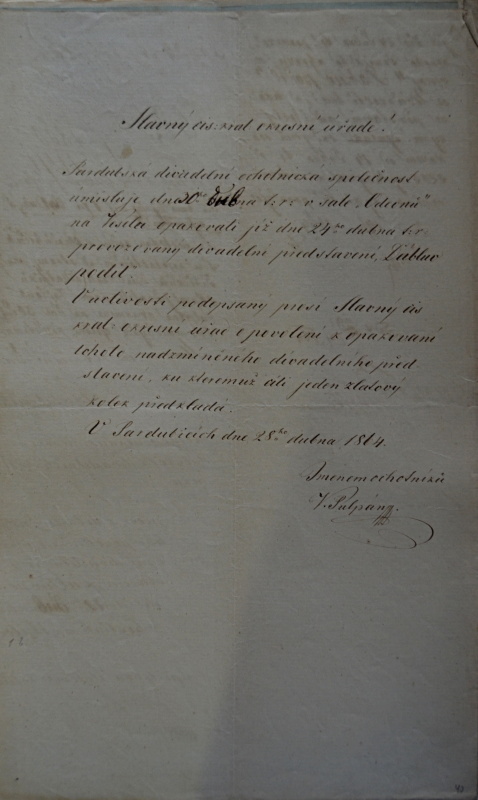 Slavný cís. král. okresní úřade!
Pardubská divadelní ochotnická společnost
úmisluje dne 30ho dubna t. r. v sále „Odeonu“
na Veselce opakovati již dne 24ho dubna t. r.
provozovaný divadelní představení,
podíl".
V uctivosti podepsaný prosí Slavný cís
král. okresní úřad o povolení k opakování
tohoto nadzmíněného divadelního před
stavení, ku kteremuž cíli jeden zlatový
kolek předkládá.
V Pardubicích dne 28ho dubna 1864.
Jménem ochotníků